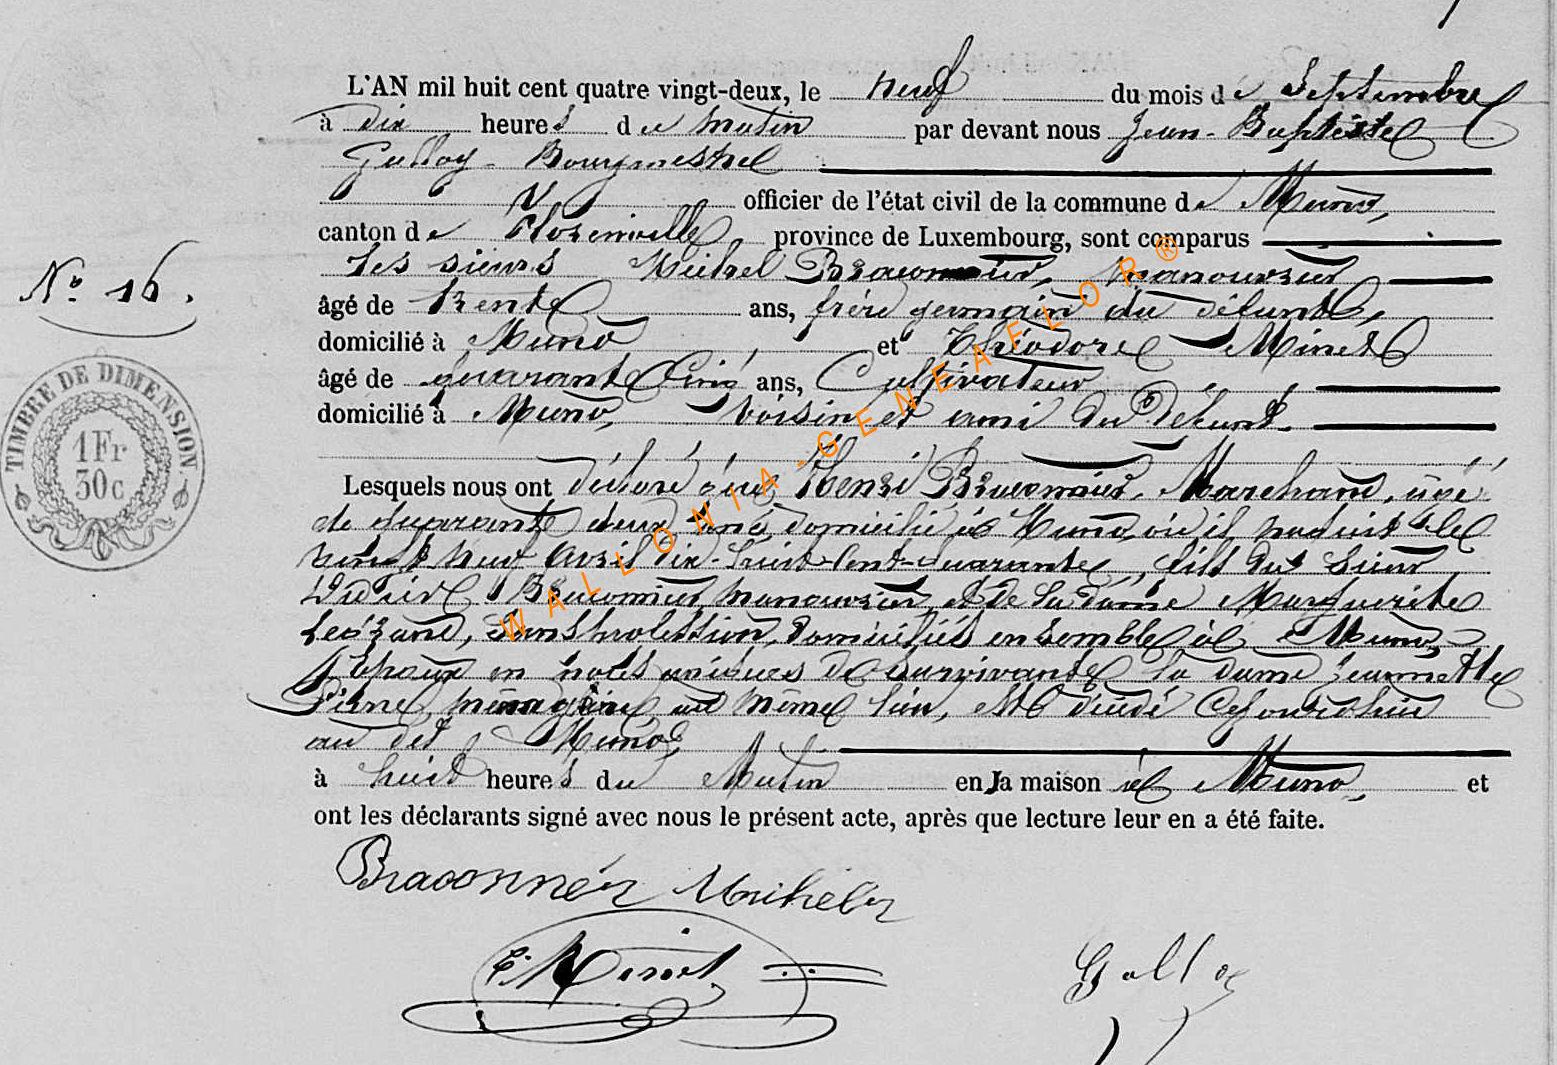 L'AN mil huit cent quatre vingt-deux, le neuf du mois de Septembre
à dix heures du matin par devant nous Jean-Baptiste
Galloy - Bourgmestre
officier de l'état civil de la commune de Muno,
canton de Florenville province de Luxembourg, sont comparus
les sieurs Michel Braconnier, manouvrier
N° 16.
âgé de trente ans, frère germain du défunt,
domicilié à Muno et Théodore Minet
âgé de quarante cinq ans, Cultivateur
domicilié à Muno, voisin et ami du défunt.
TIMBRE DE DIMENSION
1 Fr
30 c
Lesquels nous ont déclaré que Henri Braconnier, Marchand, âgé
de quarante deux ans domicilié à Muno, où il naquit le
vingt neuf avril dix-huit-cent-quarante, fils du sieur
Didier Braconnier, manouvrier et de la dame Marguerite
sans profession, domiciliés ensemble à Muno,
époux en noces uniques de survivante la dame Jeannette
ménagère au même lieu, est décédé cejourd'hui
au dit Muno,
à huit heures du Matin en la maison à Muno, et
ont les déclarants signé avec nous le présent acte, après que lecture leur en a été faite.
Braconnier Michel
T. Minet
Galloy
WALLONIA-GENEAFLOR®